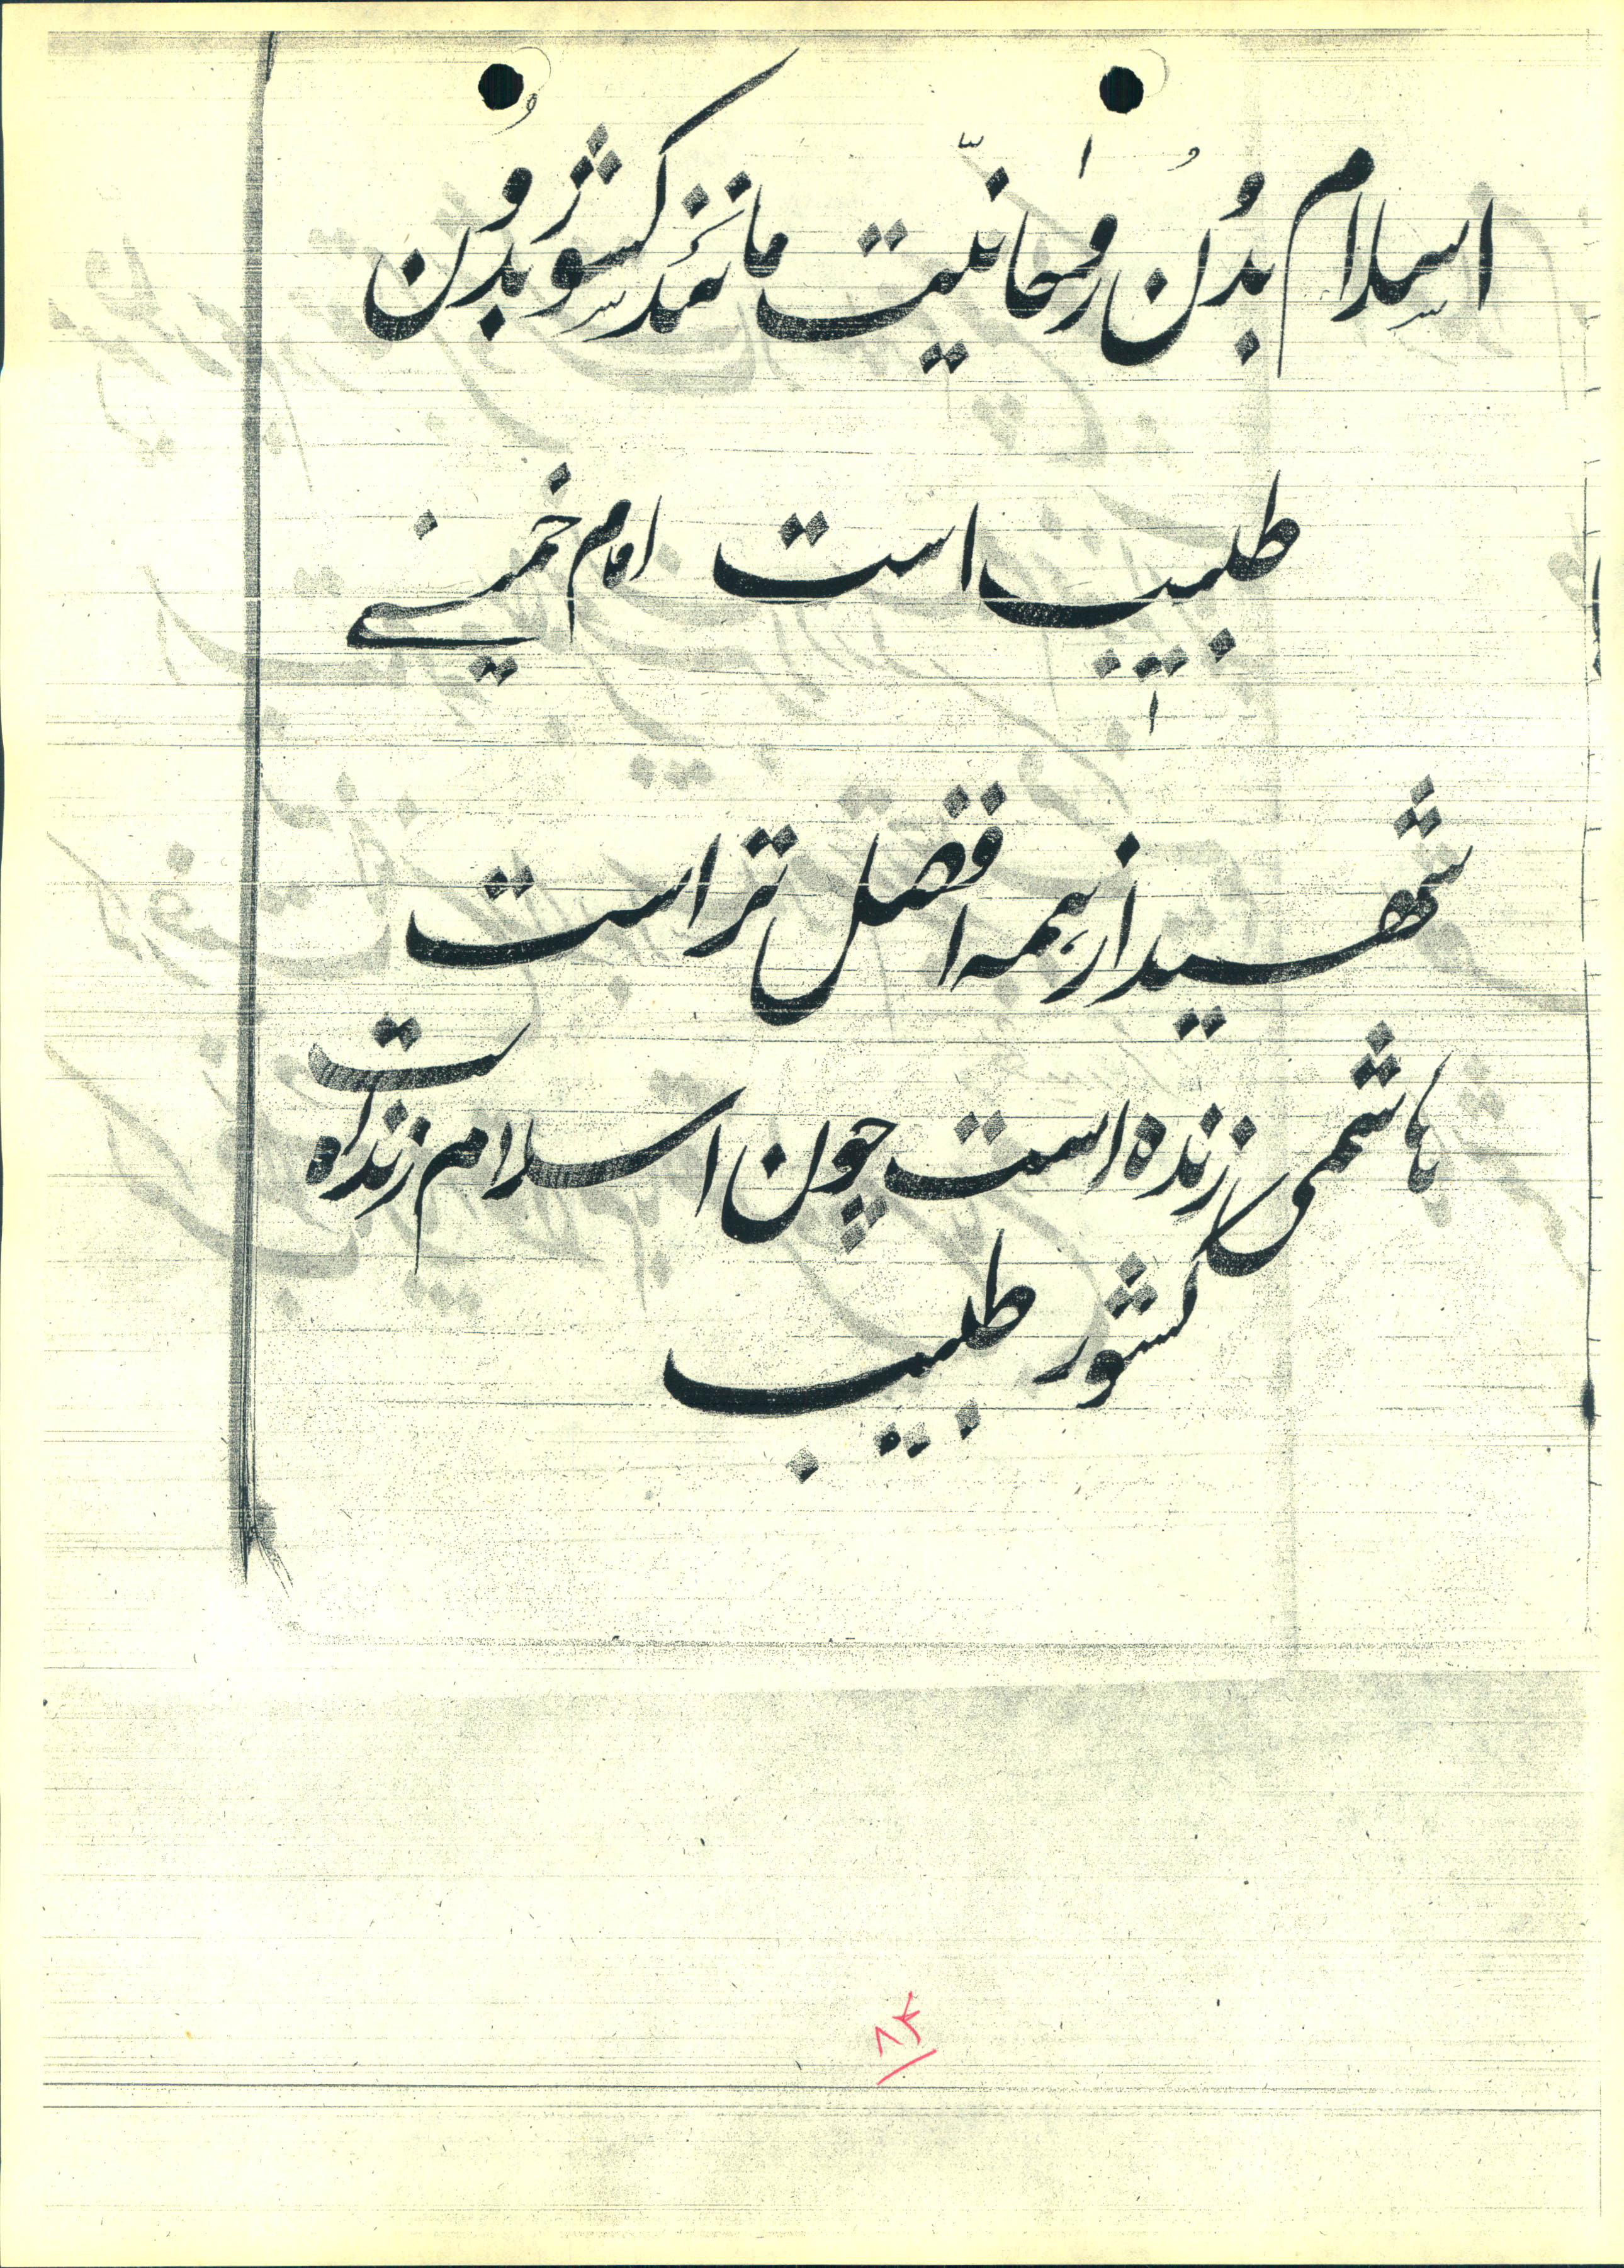 اسلام بدُون رُوحانیّت مانند کشور بدُون
طبیب است امام خمینی
شهید از همه افضل تر است
هاشمی زنده است چون اسلام زنده است
کشور طبیب
۸۴